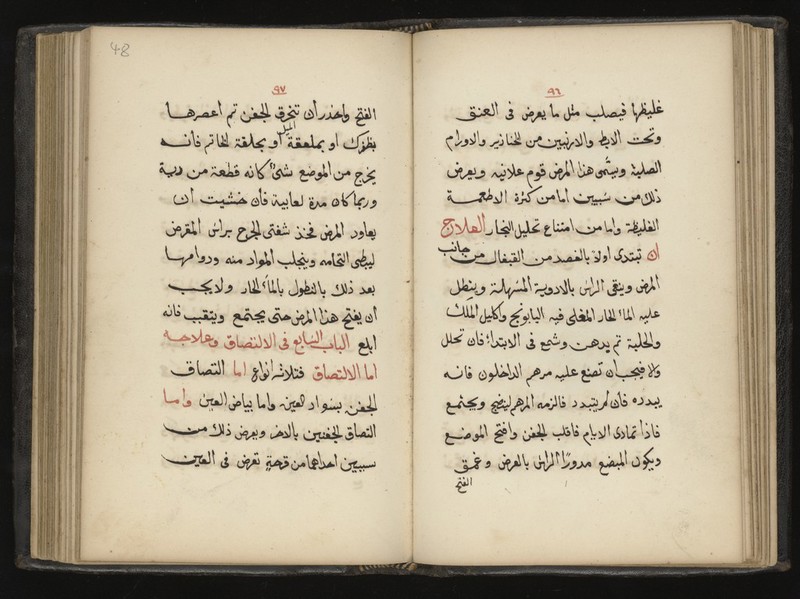 ٩٦
غليظها فيصلب مثل ما يعرض فى العنق
وتحت الابط والارنبيين من الخنازير والاورام
الصلبة ويسمى هذا المرض قوم علانيه ويعرض
ذلك من سببين اما من كثرة الاطعمة
الغليظة واما من امتناع تحليل البخار العلاج
ان تبتدى اولا بالفصد من القيفال من جانب
المرض وينقى الراس بالادوية المسهلة وينطل
عليه الماء الحار المغلى فيه البابونج واكليل الملك
والحلبة ثم بدهن وشمع فى الابتداء فان تحلل
ولا فيجب ان تضع عليه مرهم الداخلون فانه
يبدده فان لم يتبدد فالزمه المرهم لينضج ويجتمع
فاذا تمادى الايام فاقلب الجفن وافتح الموضع
ويكون المبضع مدورا الراس بالعرض وعمق
الفتح
48
٩٧
الفتح واحذر ان تنخرق الجفن ثم اعصرها
بظفرك او بملعقة الميل او بحلقة الخاتم فانه
يخرج من الموضع شئ كانه قطعة من رية
وربما كان مدة لعابية فان خشيت ان
يعاود المرض فخذ شفتى الجرح براس المقرض
ليبطى التحامه وينجلب المواد منه ودوامها
بعد ذلك بالنطول بالماء الحار ولا يجب
ان يفتح هذا المرض حتى يجتمع ويتقبب فانه
ابلع الباب السابع فى الالتصاق وعلاجه
اما الالتصاق فثلاثة انواع اما التصاق
الجفن بسواد العين واما بياض العين واما
التصاق الجفنين بالاخر ويعرض ذلك من
سببين احداهما من قرحة تعرض فى العين